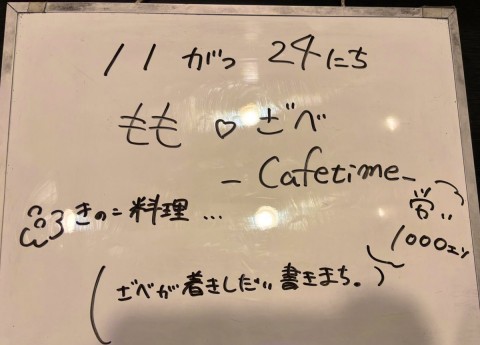 11がつ 24にち
もも♡ざべ
- Cafetime -
きのこ料理...
1000エン
(ざべが着きしだい書きまち。)